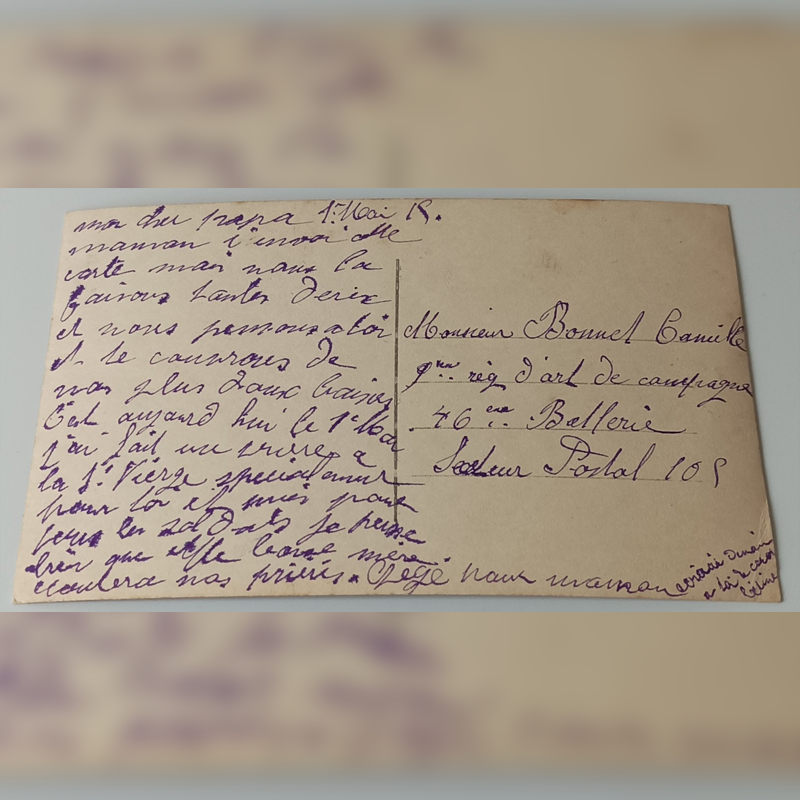 mon cher papa 1. Mai 15.
maman t'envoi cette
carte mais nous la
faisons toutes deux
et nous pensons a toi
et te couvrons de
nos plus doux baisers
C'est aujourd hui le 1er Mai
j'ai fait une prière a
la Ste Vierge specialement
pour toi et puis pour
tous les soldats je pense
bien que cette bonne mère
ecoutera nos prières. Gégé pour maman
ecrirai demain
a toi de coeur
Monsieur Bonnet Camille
9eme rég d'art de campagne
46eme Batterie
Secteur Postal 105